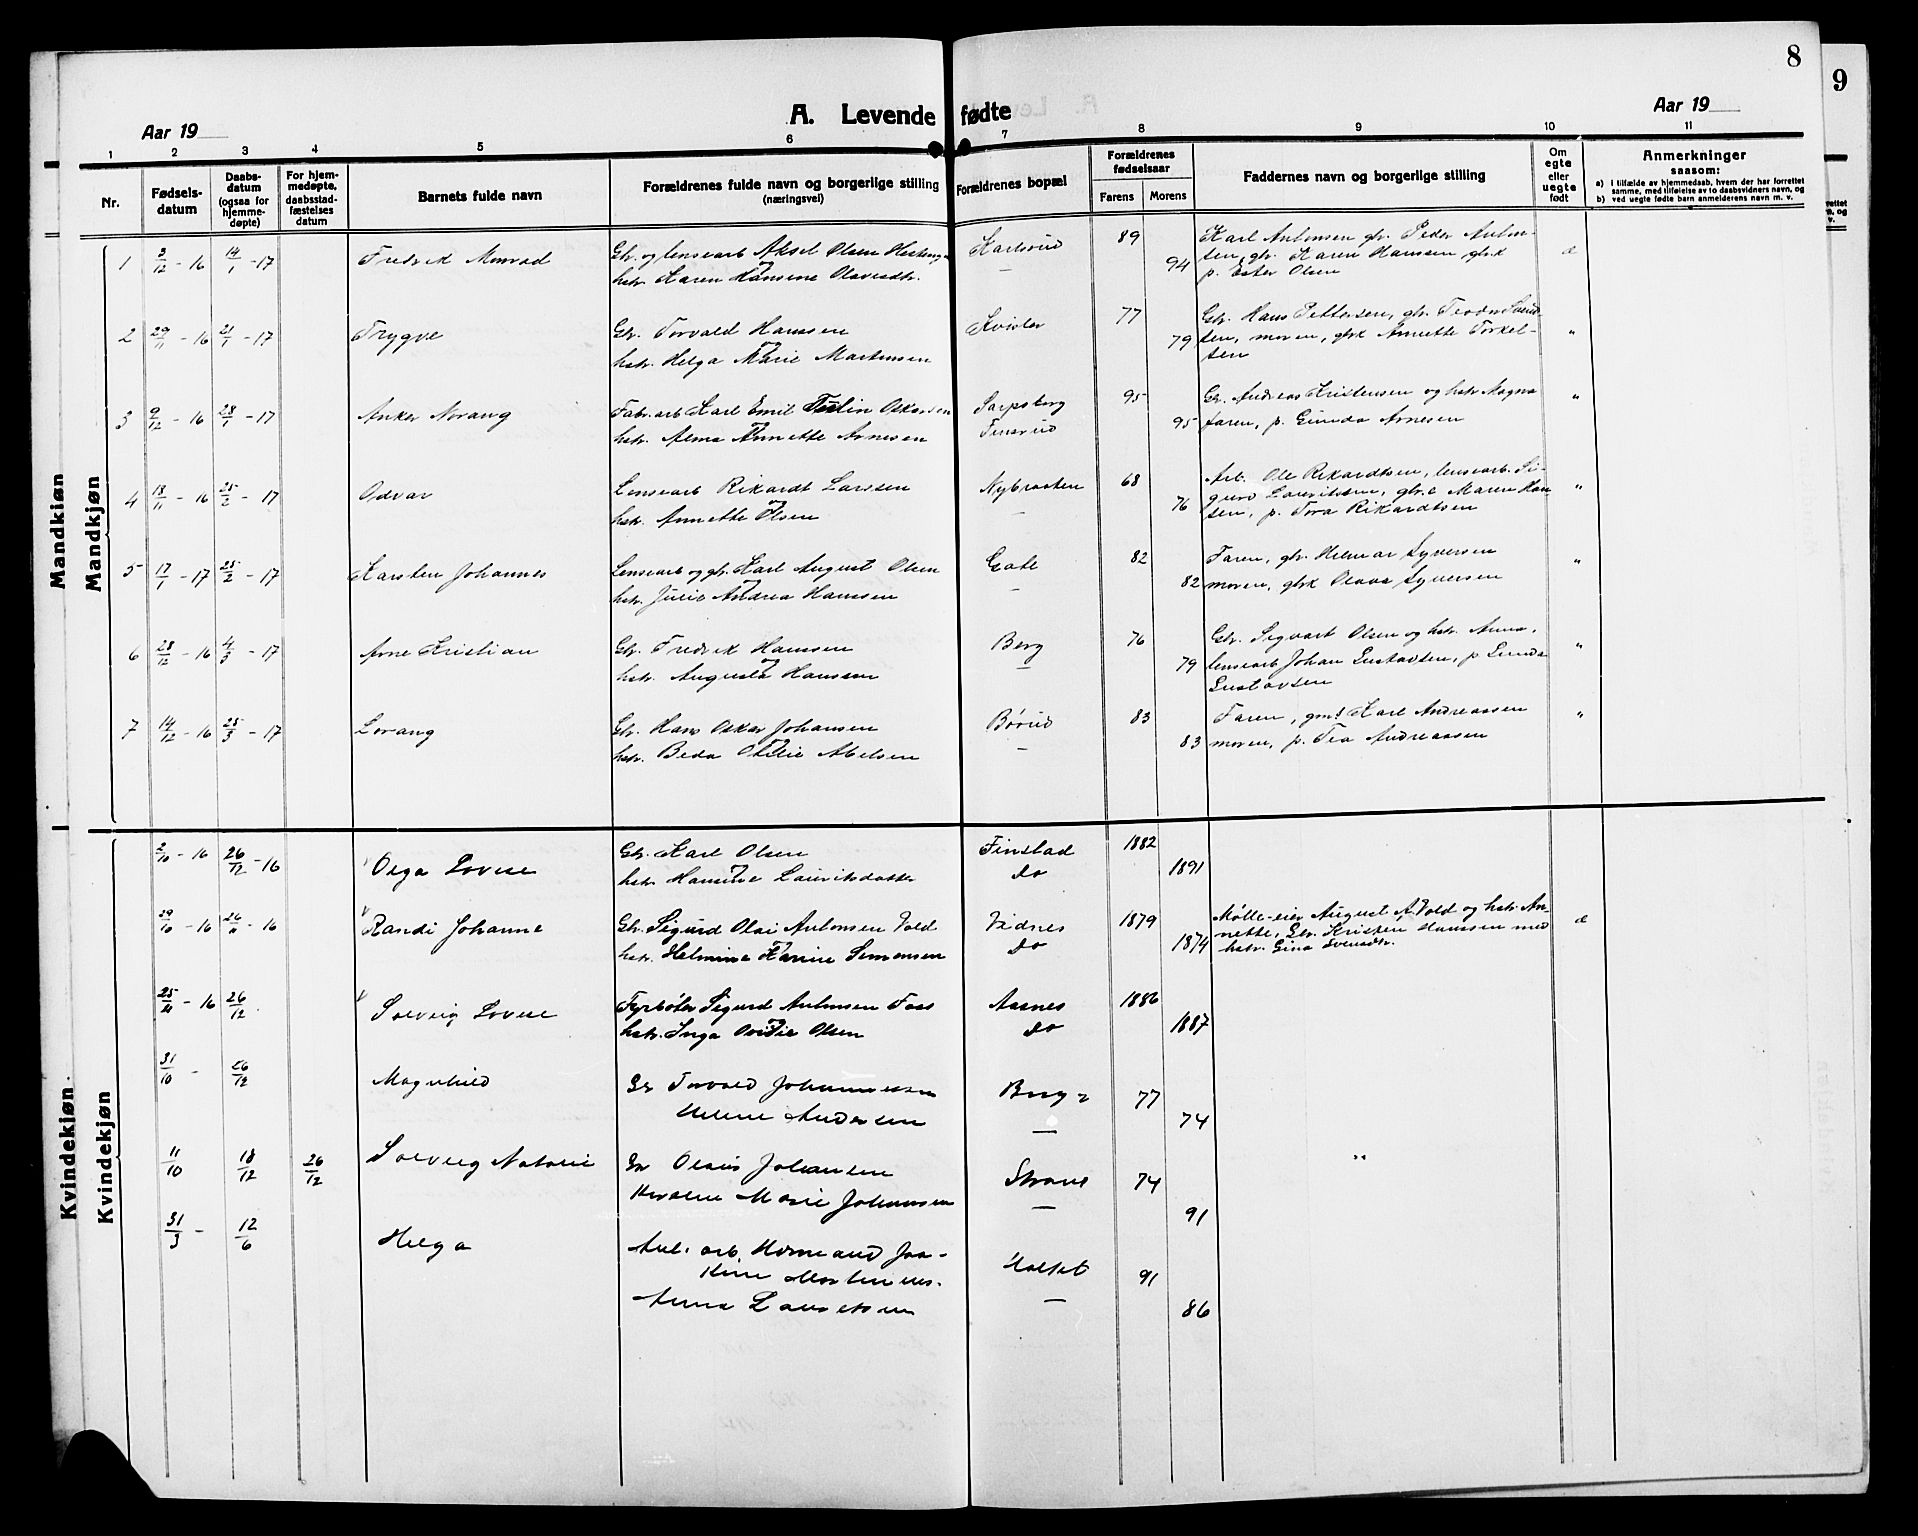 8
9
A. Levende fødte
Aar 19
Aar 19
1 2 3 4 5 6 7 8 9 10 11
Nr.
Fødsels-
datum
Daabs-
datum
(ogsaa for
hjemme-
døpte)
For hjem-
medøpte,
daabsstad-
fæstelses
datum
Barnets fulde navn
Forældrenes fulde navn og borgerlige stilling
(næringsvei)
Forældrenes bopæl
Forældrenes
fødselsaar
Farens Morens
Faddernes navn og borgerlige stilling
Om
egte
eller
uegte
født
Anmerkninger
saasom:
a) i tilfælde av hjemmedaab, hvem der har forrettet
samme, med tilføielse av to daabsvidners navn, og
b) ved uegte fødte barn anmelderens navn m. v.
Mandkjøn
Mandkjøn
1 3/12 - 16 14/1 - 17 Fredrik Monrad Gbr. og lensearb Aksel Olsen Karlsrud 89 Karl Antonsen gbr. Peder Anton- æ
hstr. Karen Hansine Olavesdtr. — 94 sen, gbr. Karen Hanssen gbrk
p. Ester Olsen
2 29/11 - 16 21/1 - 17 Trygve Gbr. Torvald Hanssen 77 Gbr. Hans Pettersen, gbr. "
hstr. Helga Marie Martinsen 79 sen, moren, gbrk Annette Torkel-
sen
3 9/12 - 16 28/1 - 17 Anker Norang Fabr. arb Karl Emil Oskarsen Sarpsborg 95 Gr. Andreas Kristensen og hstr Magna "
hstr. Alma Annette Arnesen Finsrud 95 faren, p. Gunda Arnesen
4 18/11 - 16 25/2 - 17 Odvar Lensearb Rikardt Larsen Nybraaten 68 Arb. Ole Rikardtsen, lensearb. Si- "
hstr. Annette Olsen — 76 gurd Lauritsen, gbr.e Maren Han
sen, p. Tora Rikardtsen
5 17/1 - 17 25/2 - 17 Karsten Johannes Lensearb og gbr. Karl August Olsen 82 Faren, gbr. Hilmar Syversen "
hstr. Julie Andrea Hanssen — 82 moren, gbrk Olava Syversen
6 28/12 - 16 4/3 - 17 Arne Kristian Gbr. Fredrik Hanssen Berg 76 Gbr. Sigvart Olsen og hstr. Anna, "
hstr. Augusta Hanssen — 79 lensearb Johan Gustavsen, p
Gustavsen
7 14/12 - 16 25/3 - 17 Lorang Gbr. Hans Oskar Johansen Børud 83 Faren, gm! Karl Andreassen "
hstr. Beda Otilie Abelsen — 83 moren, p. Tea Andreassen
Kvindekjøn
Kvindekjøn
2/10 - 16 26/12 - 16 Olga Lovise Gbr. Karl Olsen Finstad 1882
hstr Hansine Lauritsdatter do 1891
29/10 - 16 26/11 - 16 Randi Johanne Gbr. Sigurd Olai Antonsen Vold Vidnes 1879 Mølle-eier August A. Vold og hstr. An- æ
hstr. Helmine Karine Simonsen do 1874 nette, Gbr. Kristen Hanssen med
hstr. Gina Svensdtr.
25/11 - 16 26/12 Solveig Lovise Fyrbøter Sigurd Antonsen Foss Aasnes 1886
hstr. Inga Olsen do 1887
31/10 - 26/12 Magnhild Gr Torvald Johannessen Berg 77
Helene Andersen — 74
11/10 18/12 26/12 Solveig Natalie Gr Olaus Johansen 74 "
Marie Johannsen — 91
31/3 - 12/6 Helga Anl. arb. Hermand Joa-
kim Martinius. 91
Anna Lauritsen — 86